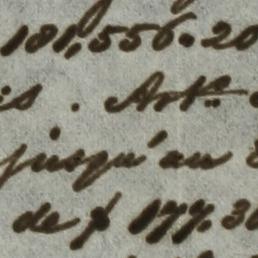 181,556.20
is. Art.
jusqu'au
de $ 177.30